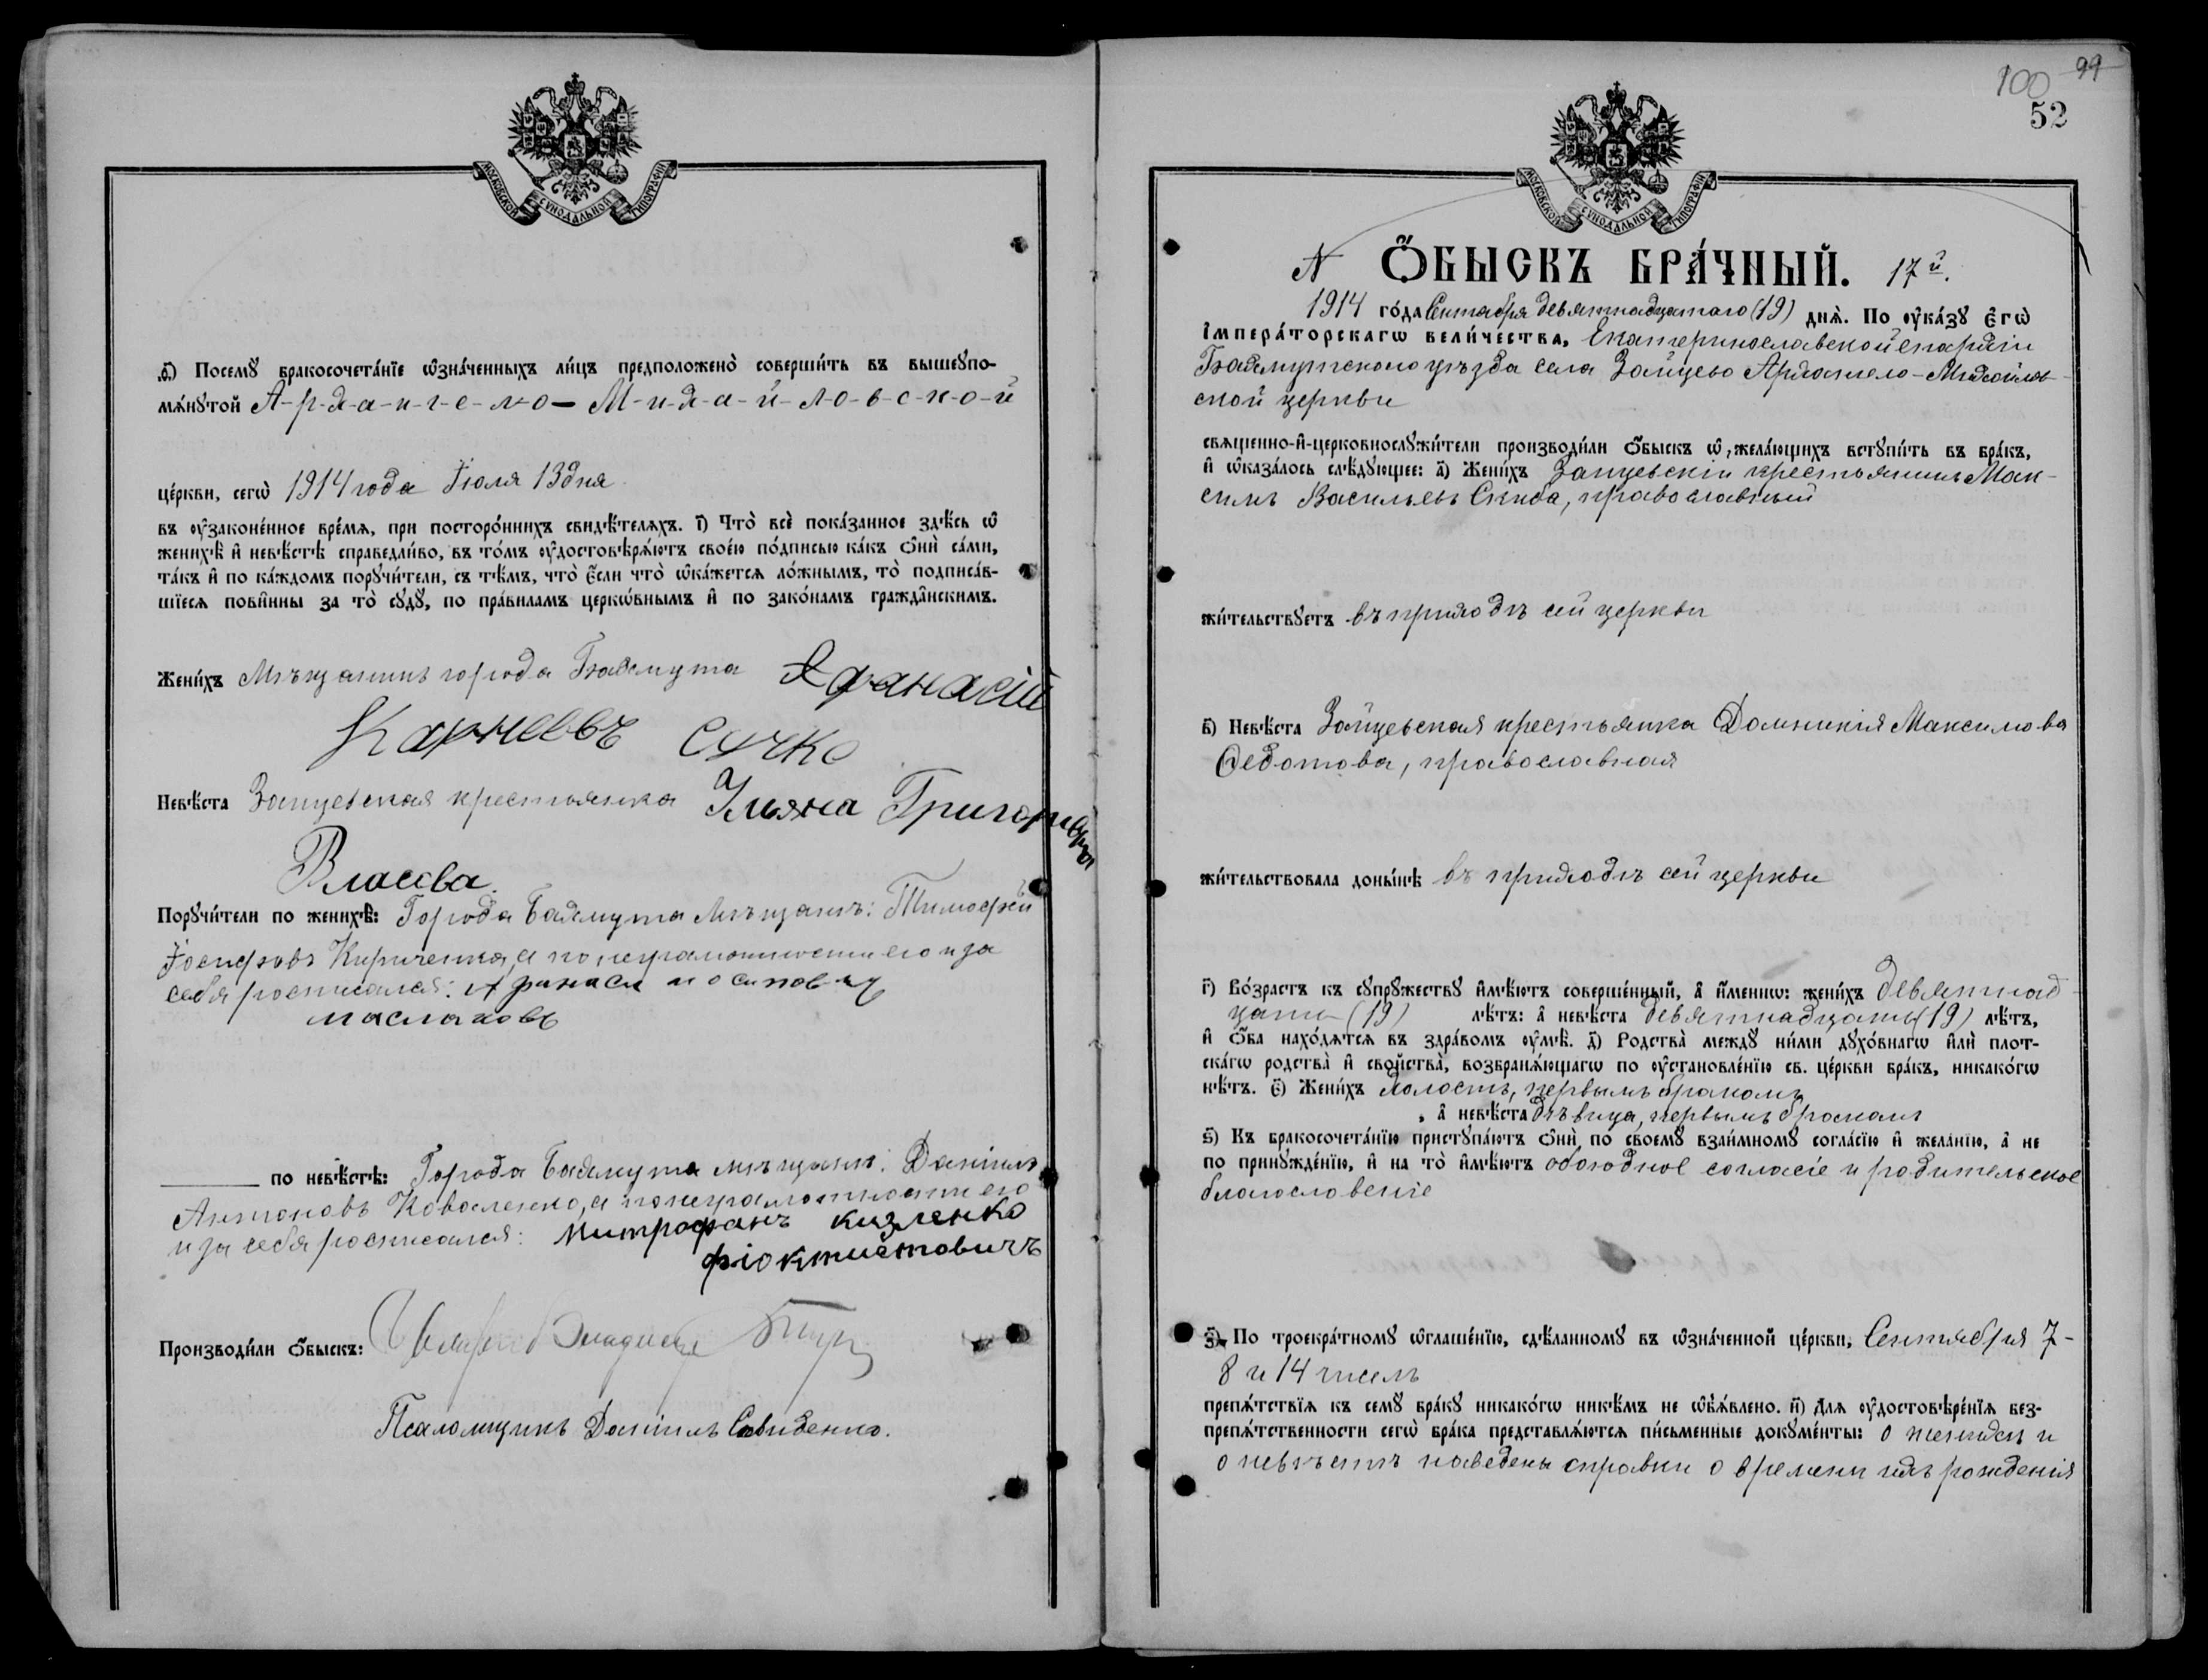 МОСКОВСКОЙ СѴНОДАЛЬНОЙ ТИПОГРАФІИ
ѳ҃) Посемꙋ̀ бракосочета́нїе ѡ҆зна́ченныхъ ли́цъ предположено̀ соверши́ть въ вышеꙋпо-
мѧ́нꙋтой А-р-х-а-н-г-е-л-о-М-и-х-а-й-л-о-в-с-к-о-й
це́ркви, сегѡ̀ 1914 года Іюля 13 дня
въ ᲂу҆законе́нное вре́мѧ, при посторо́ннихъ свидѣ́телѧхъ. і҃) Что̀ всѐ пока́занное здѣ́сь ѡ҆
женихѣ̀ и҆ невѣ́стѣ справедли́во, въ то́мъ ᲂу҆достовѣрѧ́ютъ свое́ю по́дписью ка́къ ѻ҆нѝ са́ми,
та́къ и҆ по ка́ждомъ порꙋчи́тели, съ тѣ́мъ, что̀ є҆́сли что̀ ѡ҆ка́жетсѧ ло́жнымъ, то̀ подписа́в-
шїесѧ пови́нны за то̀ сꙋдꙋ̀, по пра́виламъ церко́внымъ и҆ по зако́намъ гражда́нскимъ.
Жени́хъ Мѣщанинъ города Бахмута Афанасій
Карнеевъ Сучко
Невѣ́ста Зайцевская крестьянка Ульяна Григорьевна
Власова.
Порꙋчи́тели по женихѣ̀: Города Бахмута мѣщанъ: Тимофѣй
Іосифовъ Кириченко, а по неграмотности его и за
себя росписался: Афанаси иосиповъ
маслаковъ
по невѣ́стѣ: Города Бахмута мѣщанъ: Даніилъ
Антоновъ Коваленко, а по неграмотности его
и за себя росписался: Митрофанъ кизленко
фіоктистовичъ
Производи́ли ѻ҆́быскъ: Владисл
Псаломщикъ Даніилъ Свиденко.
100 99
52
МОСКОВСКОЙ СѴНОДАЛЬНОЙ ТИПОГРАФІИ
N Ѻ҆́БЫСКЪ БРА́ЧНЫЙ. 17й.
1914 го́да Сентября девятнадцатаго (19) днѧ̀. По ᲂу҆ка́зꙋ є҆гѡ̀
і҆мпера́торскагѡ вели́чества, Екатеринославской епархіи
Бахмутского уѣзда села Зайцево Архангело-Михайлов-
ской церкви
свѧще́нно-и҆-церковнослꙋжи́тели производи́ли ѻ҆́быскъ ѡ҆ жела́ющихъ встꙋпи́ть въ бра́къ,
и҆ ѡ҆каза́лось слѣ́дꙋющее: а҃) Жени́хъ Зайцевскій крестьянинъ Мак-
симъ Васильевъ Скиба, православный
жи́тельствꙋетъ въ приходѣ сей церкви
в҃) Невѣ́ста Зайцевская крестьянка Домникія Максимова
Ѳедотова, православная
жи́тельствовала доны́нѣ въ приходѣ сей церкви
г҃) Во́зрастъ къ сꙋпрꙋ́жествꙋ и҆мѣ́ютъ соверше́нный, а҆ и҆́меннѡ: жени́хъ девятнад-
цать (19) лѣ́тъ: а҆ невѣ́ста девятнадцать (19) лѣ́тъ,
и҆ ѻ҆́ба нахо́дѧтсѧ въ здра́вомъ ᲂу҆мѣ̀. д҃) Родства̀ междꙋ̀ ни́ми дꙋхо́внагѡ и҆лѝ пло́т-
скагѡ родства̀ и҆ сво́йства̀, возбранѧ́ющагѡ по ᲂу҆становле́нїю св. це́ркви бра́къ, никако́гѡ
нѣ́тъ. є҃) Жени́хъ холостъ, первымъ бракомъ
, а҆ невѣ́ста дѣвица, первымъ бракомъ
ѕ҃) Къ бракосочета́нїю пристꙋпа́ютъ ѻ҆нѝ по своемꙋ̀ взаи́мномꙋ согла́сїю и҆ жела́нїю, а҆ не
по принꙋжде́нїю, и҆ на то̀ и҆мѣ́ютъ обоюдное согласіе и родительское
благословеніе
з҃) По троекра́тномꙋ ѡ҆глаше́нїю, сдѣ́ланномꙋ въ ѡ҆зна́ченной це́ркви, Сентября 7-
8 и 14 чиселъ
препѧ́тствїѧ къ семꙋ̀ бра́кꙋ никако́гѡ никѣ́мъ не ѡ҆б̾ѧ́влено. и҃) Длѧ ᲂу҆достовѣре́нїѧ без-
препѧ́тственности сегѡ̀ бра́ка представлѧ́ютсѧ пи́сьменные докꙋме́нты: о женихѣ и
о невѣстѣ наведены справки о времени ихъ рожденія